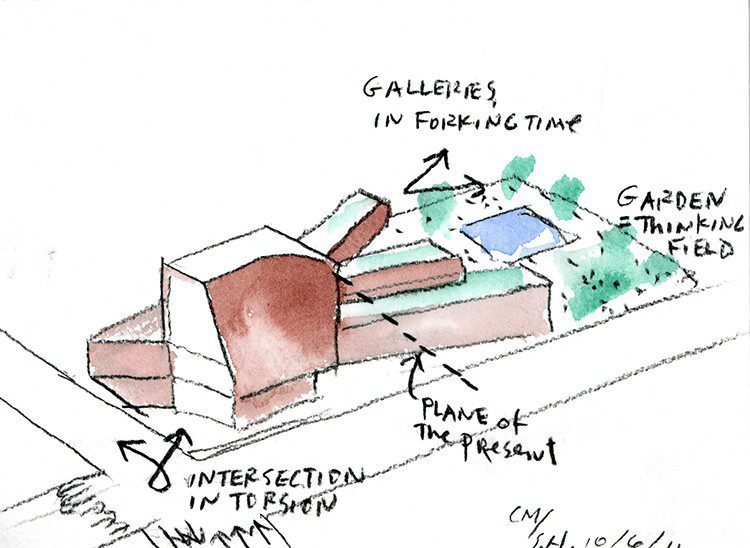 GALLERIES,
IN FORKING TIME
GARDEN
= THINKING
FIELD
PLANE OF
THE PRESENT
INTERSECTION
IN TORSION
CM/
S.H. 10/6/11